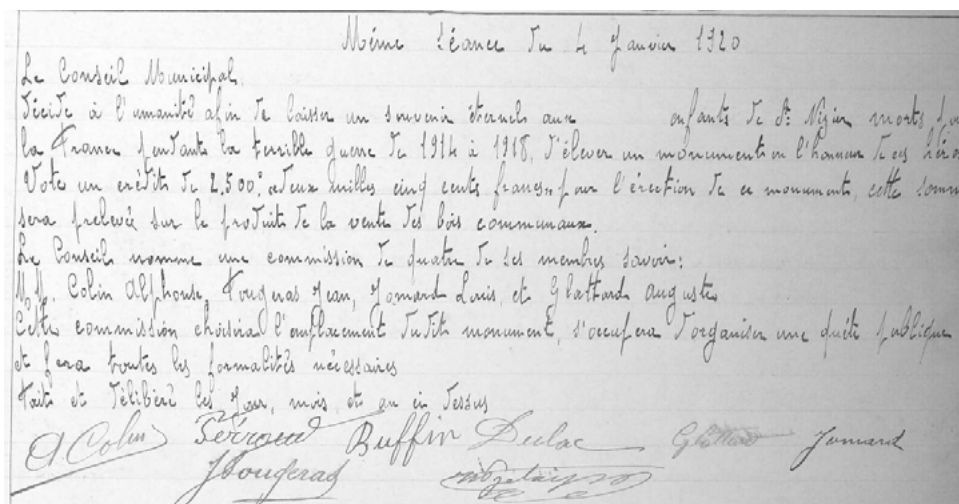 Même séance du 4 Janvier 1920
Le Conseil Municipal.
décide à l'umanité afin de laisser un souvenir éternels aux enfants de St Nizier morts pour
la France pendant la terrible guerre de 1914 à 1918, d'élever un monument en l'honneur de ces héros
Vote un crédit de 2,500f "deux milles cinq cents francs" pour l'érection de ce monument, cette somme
sera prelevée sur le produit de la vente des bois communaux.
Le Conseil nomme une commission de quatre de ses membres savoir:
M.M. Colin Alphonse, Fougeras Jean, Jomard Louis, et Glattard Auguste
Cette commission choisira l'emplacement dudit monument, s'occupera d'organiser une quête publique
et fera toutes les formalités nécessaires
Fait et délibéré les Jour, mois, et an ci dessus
A Colin Perroud Buffin Dulac Glattard Jomard
J Fougeras